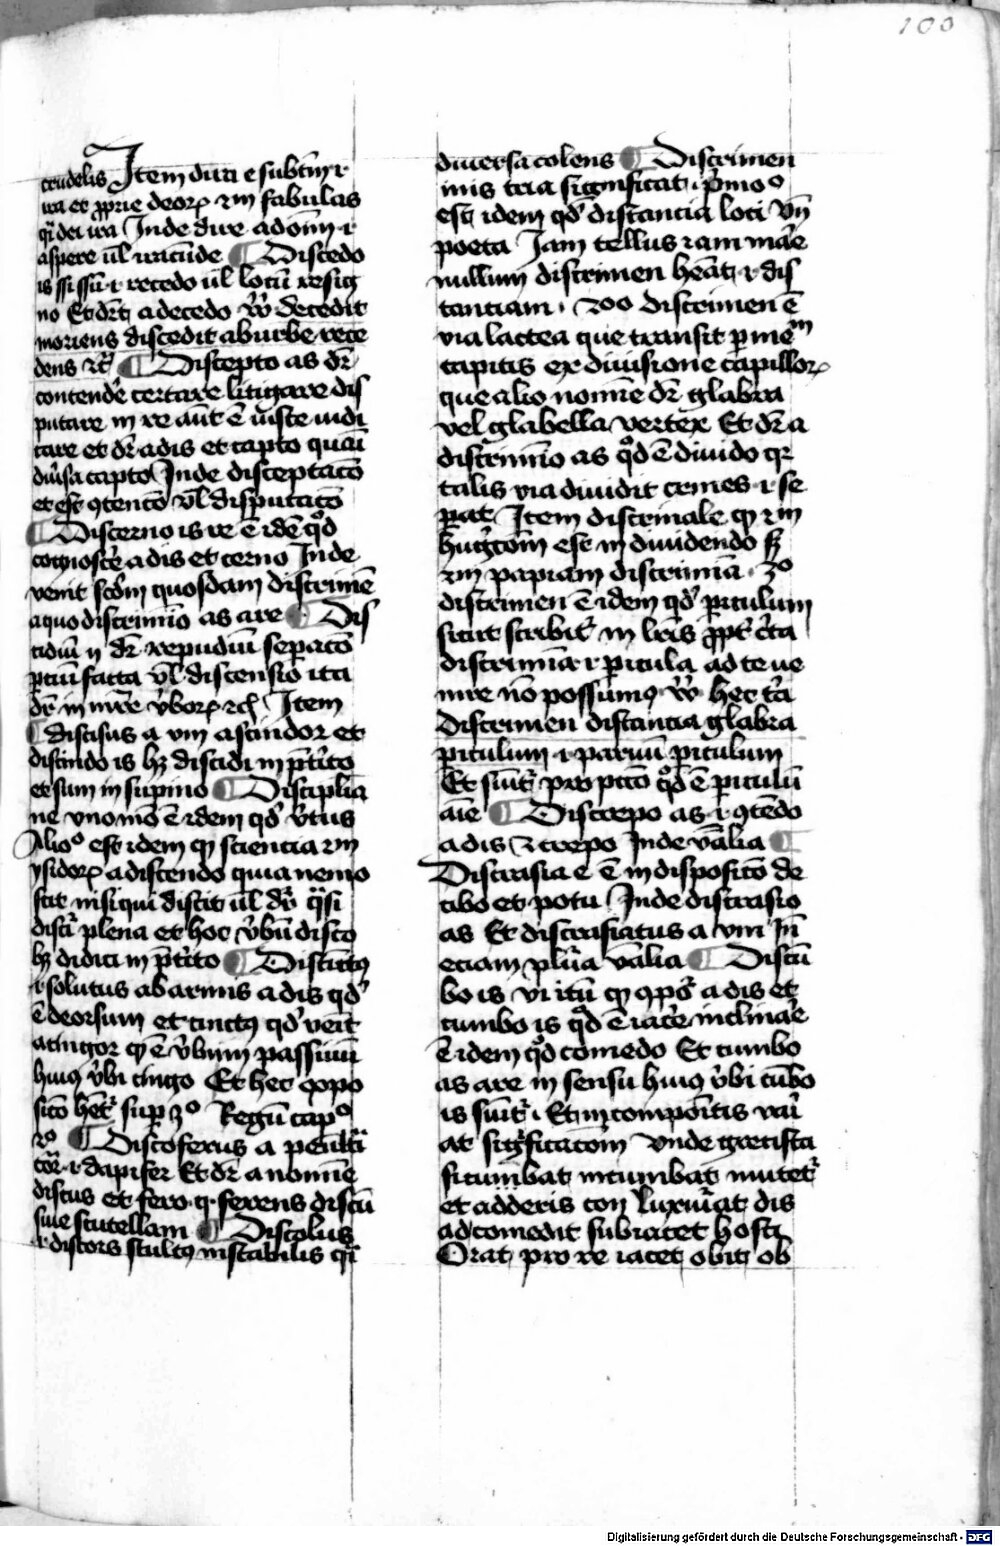 100
crudelis Item diri e subtm̄ .i.
ira et ꝓprie deoꝝ ⁊m fabulas
qͥ dei ira Inde dire adōm .i.
aspere ul̄ iracūde ¶ Discedo
is ssi ssū .i. recedo ul̄ locū resig
no Et dr̄ a decedo vn̄ decedit
moriens discedit ab urbe rece
dens ⁊c̄ ¶ Discepto as dr̄
contendē certare litigare dis
putare in re aūt ē iuste iudi
care et dr̄ a dis et capto quasi
diūsa capto Inde disceptacō
et est ꝯtencō ul̄ disputacō
¶ Discerno is re ē idē qͦd
cognoscē a dis et cerno Inde
venit scd̄m quosdam discrimē
a quo discrimino as are ¶ Dis
cidiū ij dr̄ repudiū sepacō
pciū facta ul̄ discensio ita
dr̄ in mr̄e v̄boꝝ ⁊c̄ Item
¶ discisus a um a scindor et
discindo is hꝫ discidi in p̄tito
et sum in supino ¶ Disciplīa
ne uno mō ē idem qd̓ v̓tus
Alioͦ est idem ꝙ sciencia ⁊m
ysidoꝝ a discendo quia nemo
scit nisi qui discit ul̄ dr̄ qͣsi
disci plena et hoc v̓bū disco
hꝫ didici in p̄tito ¶ Discinctꝰ
.i. solutus ab armis a dis qd̓
ē deorsum et cinctꝰ qd̓ venit
a cingor ꝙ ē v̓bum passiuū
huiꝰ v̓bi cingo Et hec ꝓpo
sicō hēt̄ sup̄ 3ͦ Regū capͦ
2ͦ ¶ Discoferus a penl̄ti
cor̄ .i. dapifer Et dr̄ a nomīe
discus et fero .q. ferens discū
siue scutellam ¶ Discolus
.i. discors stultꝰ instabilis qͣsi
diuersa colens ¶ Discrimen
inis tria significat. pͥmoͦ
est idem qd̓ distancia loci vn̄
poeta Iam tellus ⁊ am mar̄e
nullum discrimen hēnt̄ .i. dis
tanciam. 2oͦ discrimen ē
via lactea que transit p̄ mem
capitis ex diuisione capilloꝝ
que alio nomīe dr̄ glabra
vel glabella vertex Et dr̄ a
discrimino as qͦd ē diuido qr
talis via diuidit crines .i. se
parat Item discriminale ꝙ ⁊m
hugicōm est in diuidendo sꝫ
⁊m papiam discrimīa. 3ͦ
discrimen ē idem qd̓ p̄iculum
sicut scribit̄ in lr̄is ꝓpt̄ c̓ta
discrimīa .i. p̄icula ad te ue
nire nō possumꝰ vn̄ hec tr̄ia
Discrimen distancia glabra
p̄iculum .i. paruū p̄iculum
Et sumit̄ pro pcco qͦd ē p̄iculū
aīe ¶ Discrepo as .i. ꝯtēdo
a dis ⁊ crepo Inde v̄alia ¶
Discrasia e ē indisposicō de
cibo et potu Inde discrasio
as Et discrasiatus a um In̄
eciam plur̄a v̄alia ¶ Discū
bo is ui itū ꝙ ꝯpōr̄ a dis et
cumbo is qͦd ē iacēre inclinar̄e
ē idem qͦd comedo Et cumbo
as are in sensu huiꝰ v̓bi cūbo
is sumit̄. Et in compōitis vari
at significacōm Vnde grecista
si cumbat incumbat mutet̄
et adderis con luxuriat dis
ad comedit subiacet hosti
Orat pro re iacet obit ob
Digitalisierung gefördert durch die Deutsche Forschungsgemeinschaft - DFG